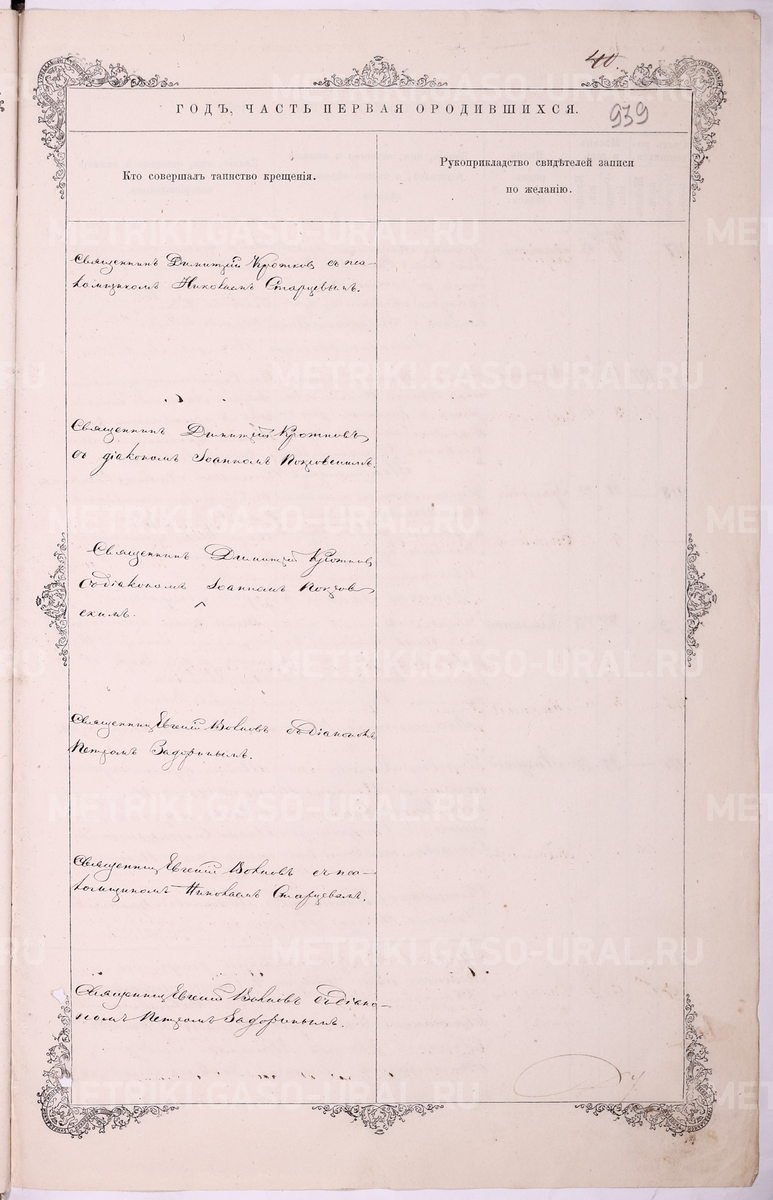 40.
ГОДЪ, ЧАСТЬ ПЕРВАЯ ОРОДИВШИХСЯ.
939
Кто совершалъ таинство крещенія.
Рукоприкладство свидѣтелей записи
по желанію.
Священникъ Димитрій Кротков съ пса-
ломщикомъ Николаемъ Старцевымъ.
Священникъ Димитрій Кротковъ
съ діакономъ Іоанномъ Покровскимъ.
Священникъ Димитрій Кротков
съ діакономъ Іоанномъ Покров
скимъ.
Священникъ Евгеній Волковъ съ діакономъ
Петромъ Задоринымъ.
Священникъ Евгеній Волковъ съ пса-
ломщикомъ Николаемъ Старцевымъ.
Священникъ Евгеній Волковъ съ діако-
номъ Петромъ Задоринымъ.
METRIKI.GASO-URAL.RU